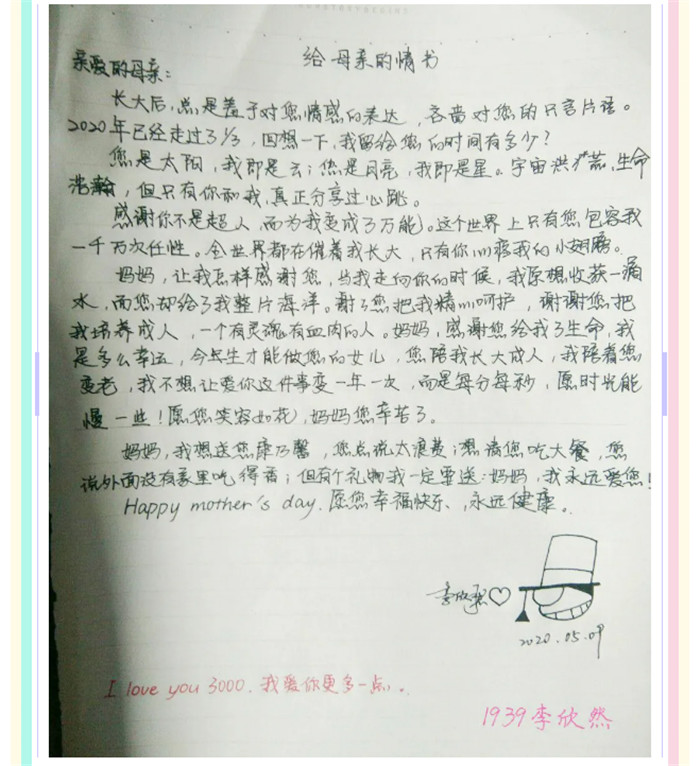 给母亲的情书
亲爱的母亲:
长大后,总是羞于对您情感的表达,吝啬对您的只言片语。
2020年已经走过了1/3,回想一下,我留给您的时间有多少?
您是太阳,我即是云;您是月亮,我即是星。宇宙洪荒,生命
浩瀚,但只有你和我,真正分享过心跳。
感谢你不是超人,而为我变成了万能。这个世界上只有您包容我
一千万次任性。全世界都在催着我长大,只有你心疼我的小翅膀。
妈妈,让我怎样感谢您,当我走向你的时候,我原想收获一滴
水,而您却给了我整片海洋。谢了您把我精心呵护,谢谢您把
我培养成人,一个有灵魂有血肉的人。妈妈,感谢您给我了生命,我
是多么幸运,今生才能做您的女儿,您陪我长大成人,我陪着您
变老,我不想让爱你这件事变一年一次,而是每分每秒,愿时光能
慢一些!愿您笑容如花,妈妈您辛苦了。
妈妈,我想送您康乃馨,您总说太浪费;想请您吃大餐,您
说外面没有家里吃得香;但有个礼物我一定要送:妈妈,我永远爱您!
Happy mother's day.愿您幸福快乐、永远健康。
李欣然♡
2020.05.09
I love you 3000.我爱你更多一点。
1939李欣然